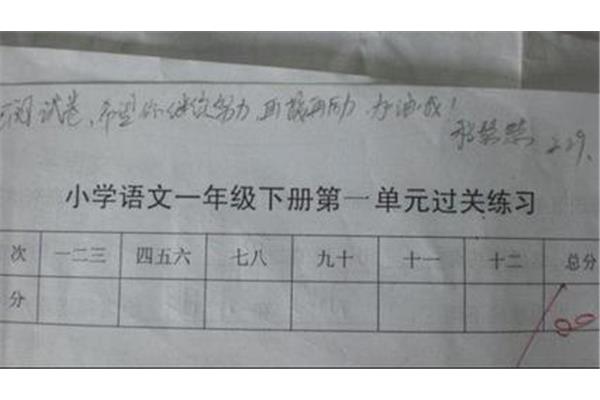 阅试卷、希望你继续努力 再接再励 加油哦！
2.29.
小学语文一年级下册第一单元过关练习
次 一二三 四五六 七八 九十 十一 十二 总分
分